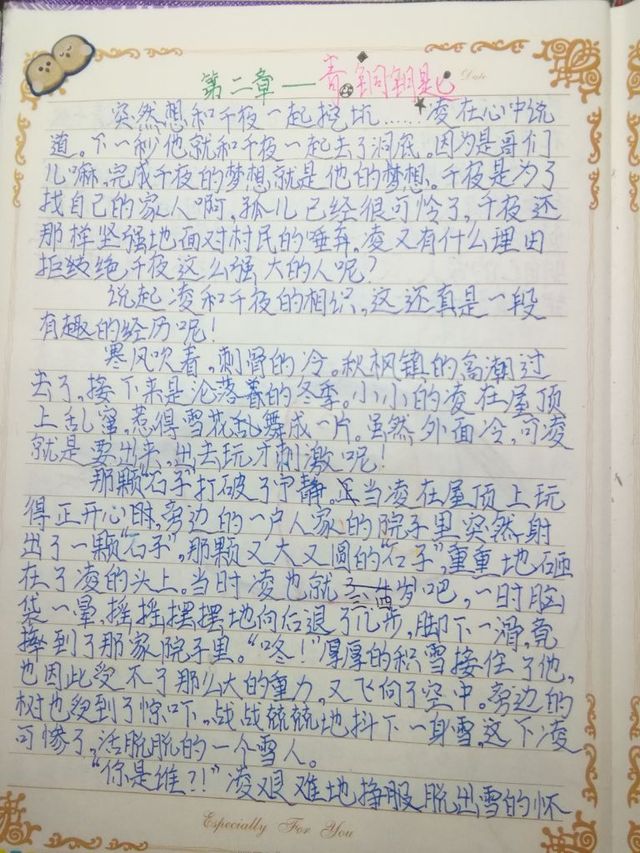 第二章——青铜钥匙
Date
突然想和千夜一起挖坑……凌在心中饶
道。下一秒他就和千夜一起去了洞底。因为是哥们
儿嘛,完成千夜的梦想就是他的梦想。千夜是为了
找自己的家人啊,孤儿已经很可怜了,千夜还
那样坚强地面对村民的唾弃,凌又有什么理由
拒绝千夜这么强大的人呢?
说起凌和千夜的相识,这还真是一段
有趣的经历呢!
寒风吹着,刺骨的冷。秋枫镇的高潮过
去了,接下来是沦落着的冬季。小小的凌在屋顶
上乱窜,惹得雪花乱舞成一片。虽然外面冷,可凌
就是要出来,出去玩才刺激呢!
那颗“石子”打破了宁静。正当凌在屋顶上玩
得正开心时,旁边的一户人家的院子里突然射
出了一颗“石子”,那颗又大又圆的“石子”,重重地砸
在了凌的头上。当时凌也就三四岁吧,一时脑
袋一晕,摇摇摆摆地向后退了几步,脚下一滑,竟
摔到了那家院子里。“咚!”厚厚的积雪接住了他,
也因此受不了那么大的重力,又飞向了空中。旁边的
树也受到了惊吓,战战兢兢地抖下一身雪,这下凌
可惨了,活脱脱的一个雪人。
“你是谁?!”凌艰难地挣脱出雪的怀
Especially For You